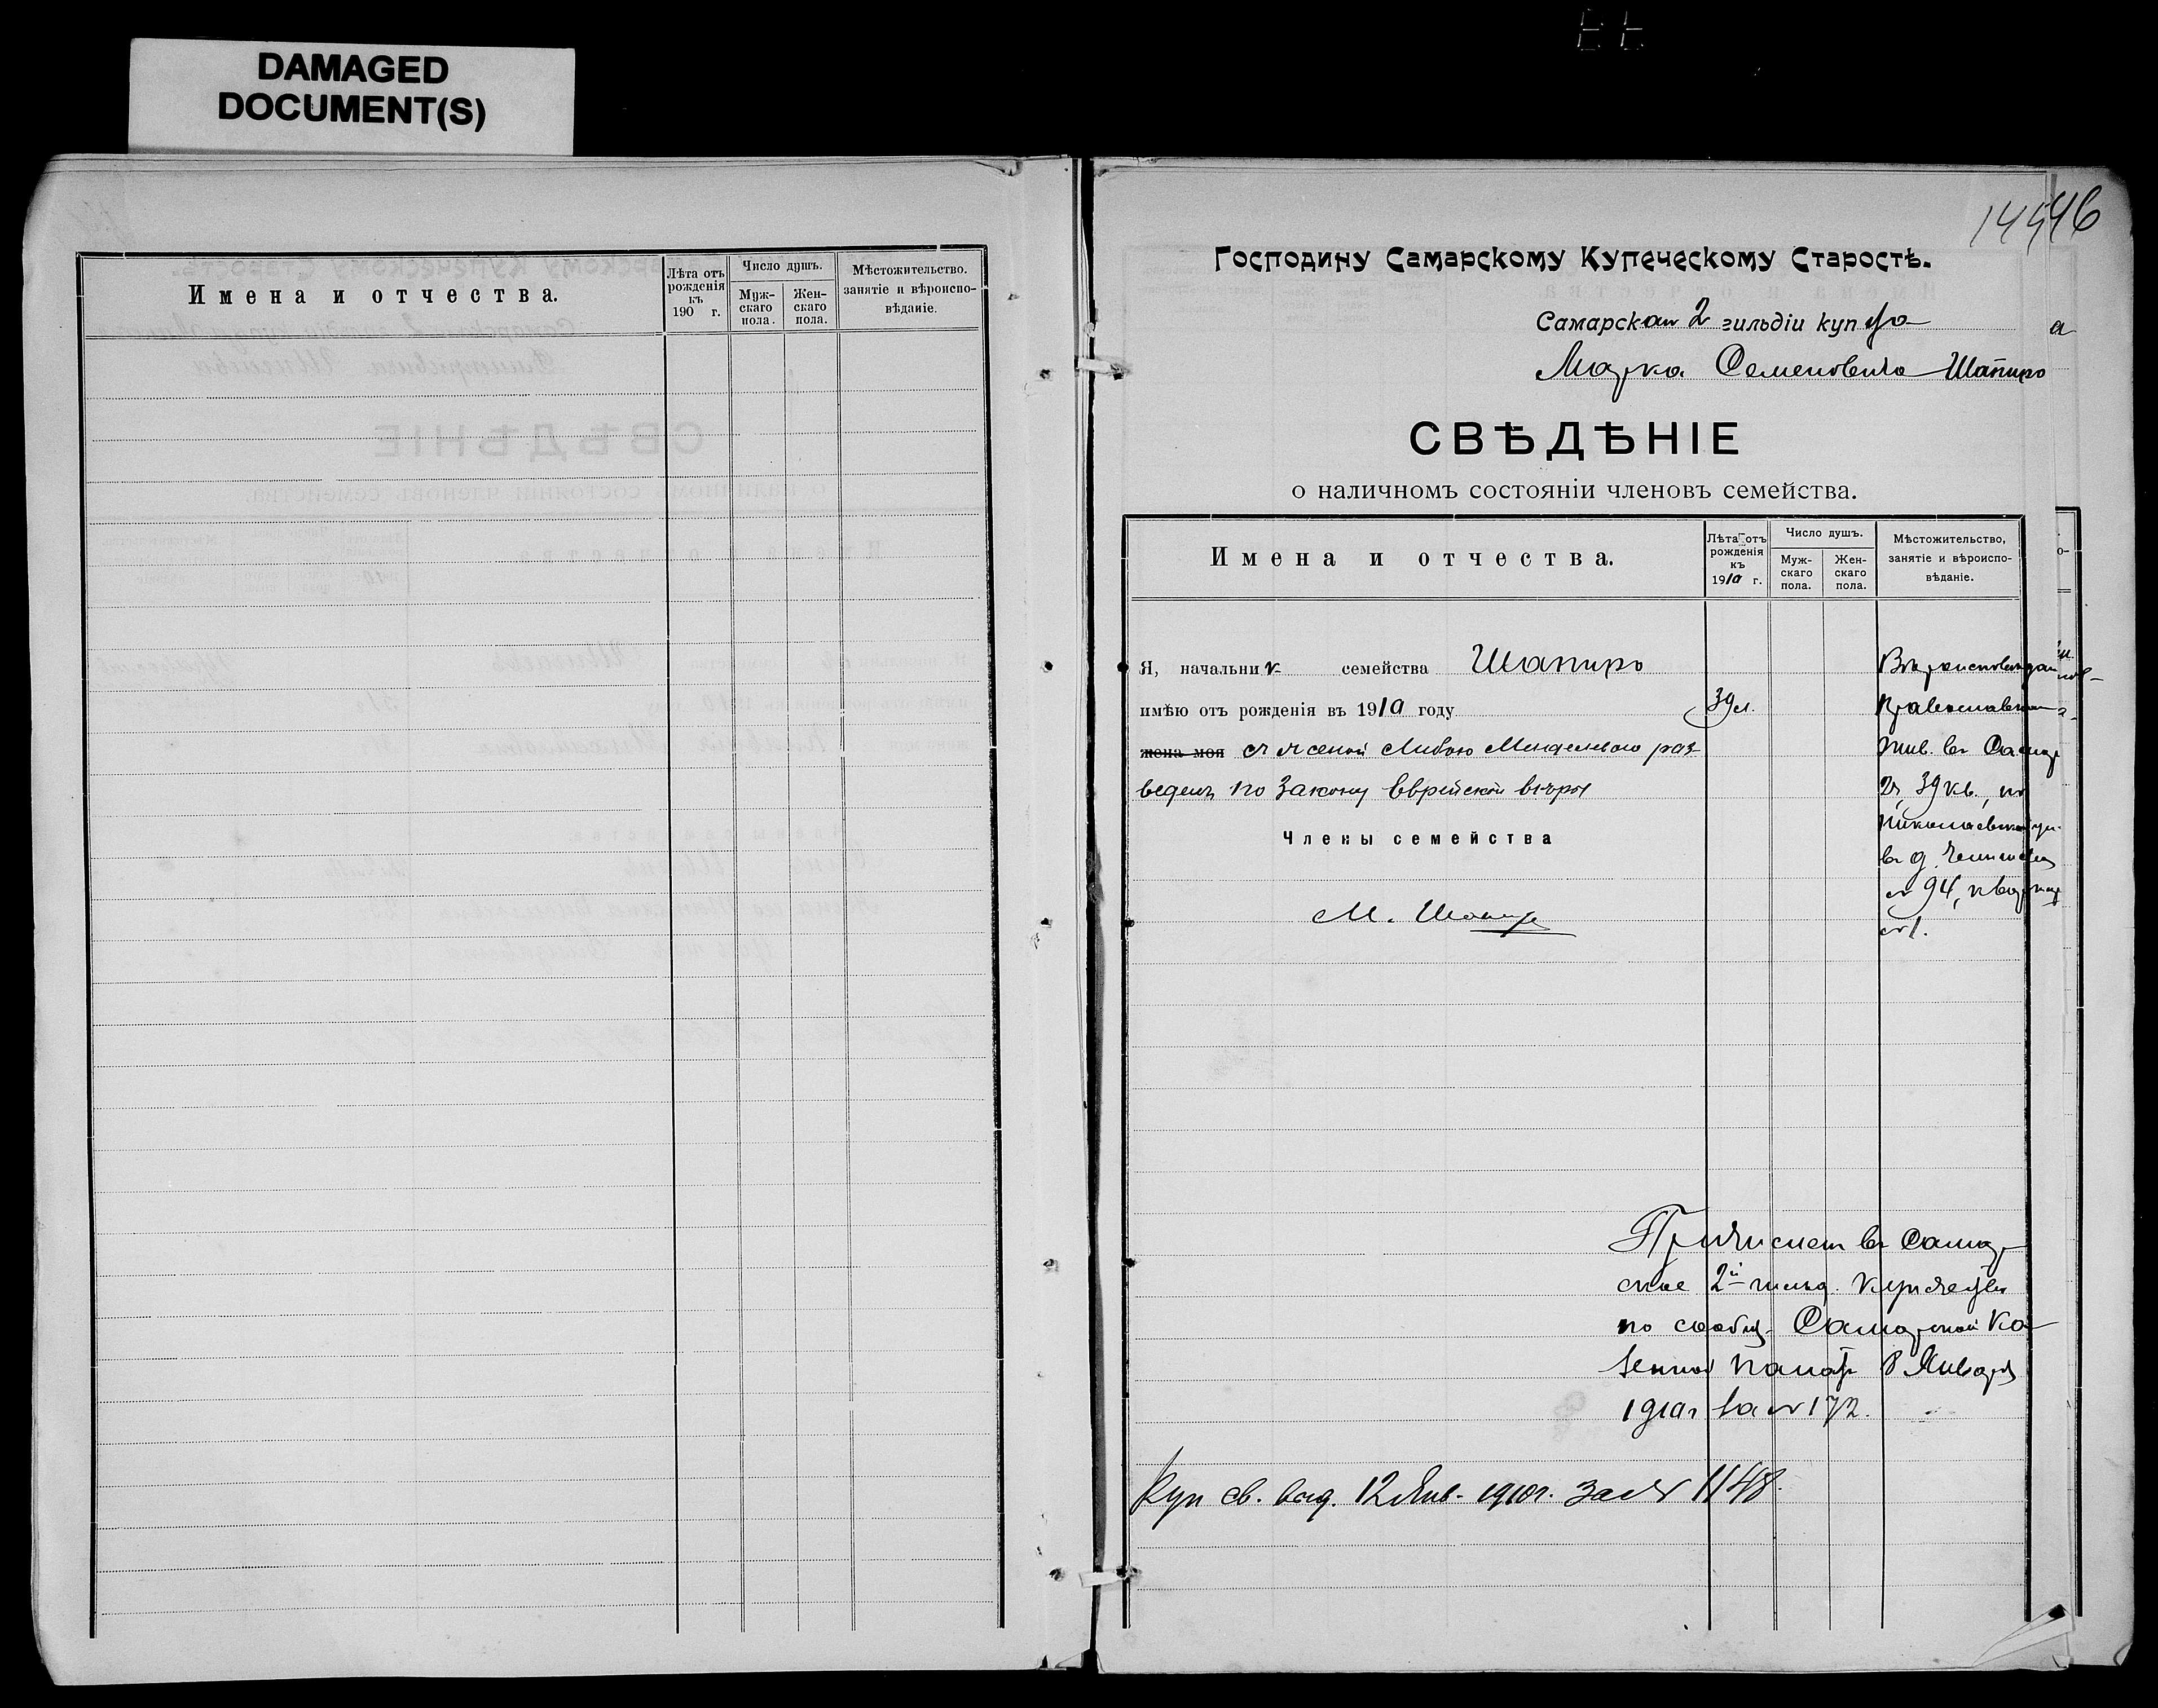 DAMAGED
DOCUMENT(S)
Имена и отчества.
Лѣта отъ рожденія къ 190 г.
Число душъ.
Мужскаго пола.
Женскаго пола.
Мѣстожительство.
занятіе и вѣроиспо-
вѣданіе.
Господину Самарскому Купеческому Старостѣ.
Самарскаго 2 гильдіи купца
Марка Семеновича Шапиро
СВѢДѢНІЕ
о наличномъ состояніи членовъ семейства.
Имена и отчества.
Лѣта отъ рожденія къ 1910 г.
Число душъ.
Мужскаго пола.
Женскаго пола.
Мѣстожительство,
занятіе и вѣроиспо-
вѣданіе.
Я, начальникъ семейства Шапиро
имѣю отъ рожденія въ 1910 году 39 л.
жена моя съ женой Либою Менделевою раз-
веденъ по закону Еврейской вѣры
Члены семейства
М. Шапиро
Православнаго
Жив. въ Самар
2ч, 39 кв., по
Николаевской ул.
въ д.
№ 94, квартир
№ 1.
Причислен въ Самар-
ское 2й гильд. купечество
по сообщ. Самарской Ка-
зенной Палаты 8 Января
1910г за № 172.
Куп св. выд. 12 Янв. 1910г. за № 1148.